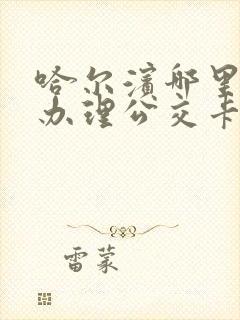 哈尔滨哪里
办理公交卡
雷蒙